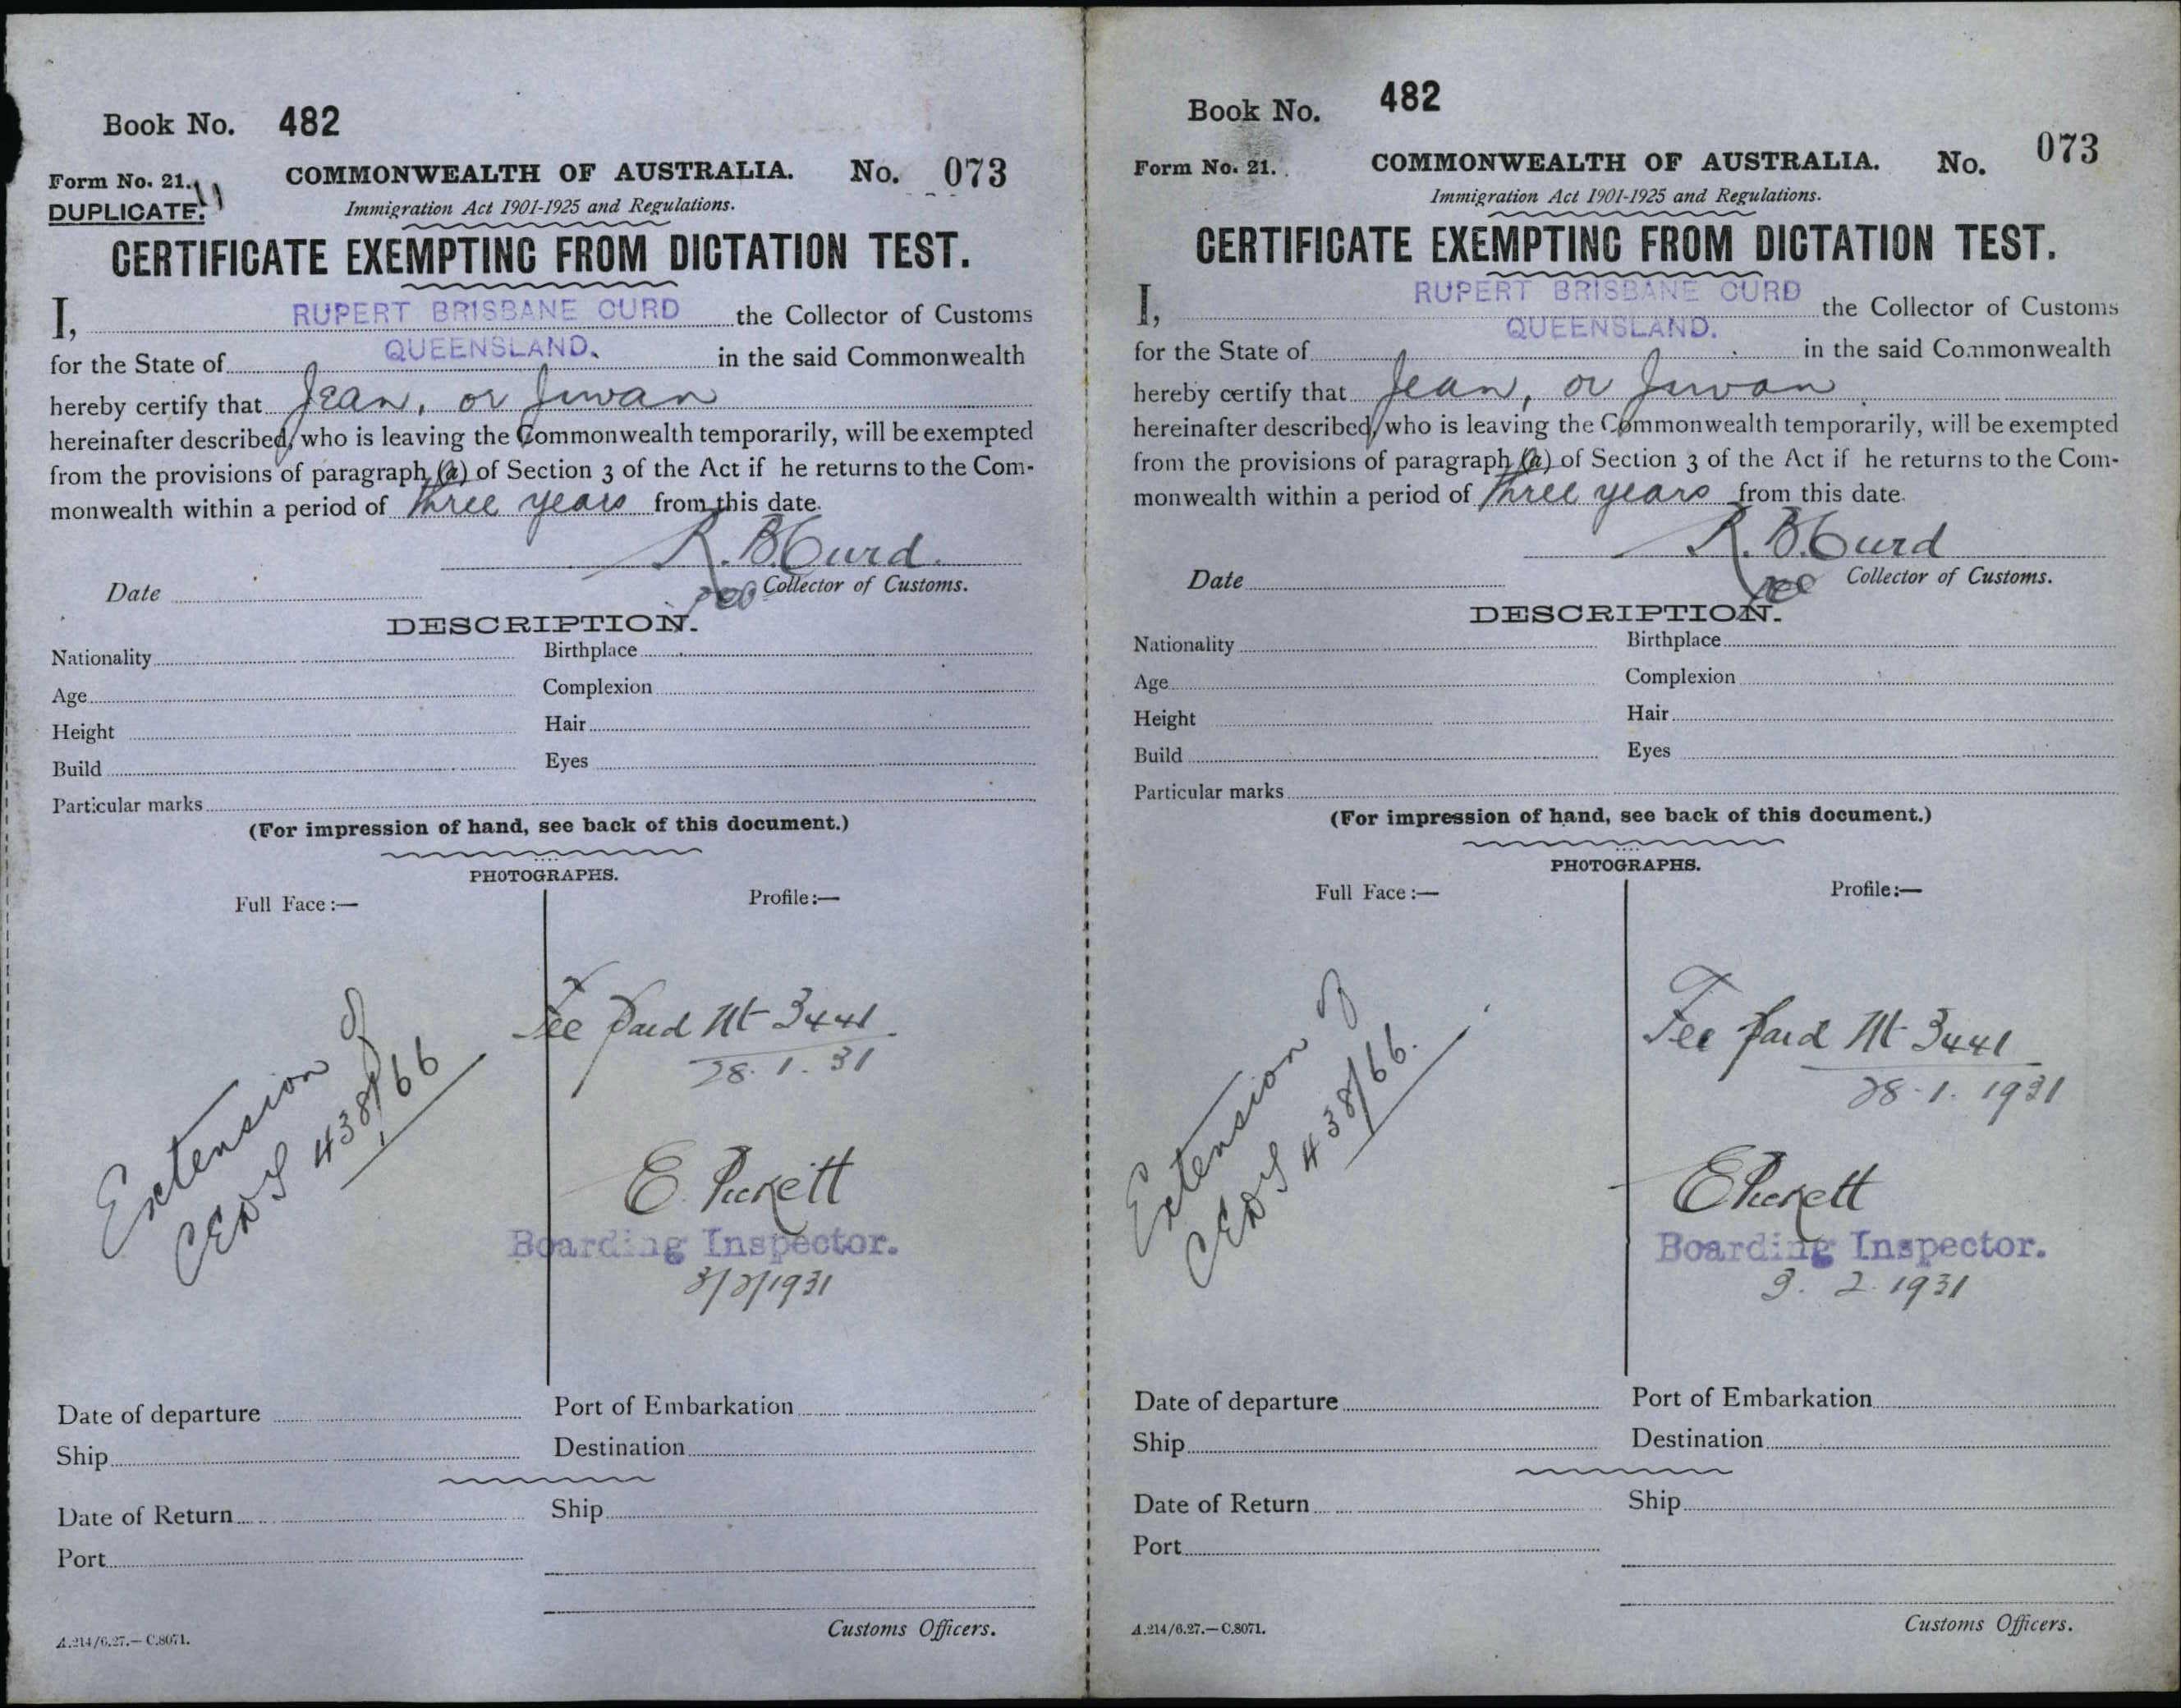 Book No. 482
Form No. 21.
COMMONWEALTH OF AUSTRALIA. No. 073
DUPLICATE.
Immigration Act 1901-1925 and Regulations.
CERTIFICATE EXEMPTING FROM DICTATION TEST.
I, RUPERT BRISBANE CURD the Collector of Customs
for the State of QUEENSLAND. in the said Commonwealth
hereby certify that Jean, or Juwan
hereinafter described, who is leaving the Commonwealth temporarily, will be exempted
from the provisions of paragraph (a) of Section 3 of the Act if he returns to the Com-
monwealth within a period of three years from this date.
R. B. Curd.
Date
Collector of Customs.
DESCRIPTION.
Nationality Birthplace
Age Complexion
Height Hair
Build Eyes
Particular marks
(For impression of hand, see back of this document.)
PHOTOGRAPHS.
Full Face:— Profile:—
Extension of
CEDT 438/66
Fee paid 3441
28. 1. 31
E. Pickett
Boarding Inspector.
3/2/1931
Date of departure Port of Embarkation
Ship Destination
Date of Return Ship
Port
Customs Officers.
A.214/6.27.—C.8071.
Book No. 482
Form No. 21.
COMMONWEALTH OF AUSTRALIA. No. 073
Immigration Act 1901-1925 and Regulations.
CERTIFICATE EXEMPTING FROM DICTATION TEST.
I, RUPERT BRISBANE CURD the Collector of Customs
for the State of QUEENSLAND. in the said Commonwealth
hereby certify that Jean, or Juwan
hereinafter described, who is leaving the Commonwealth temporarily, will be exempted
from the provisions of paragraph (a) of Section 3 of the Act if he returns to the Com-
monwealth within a period of three years from this date.
R. B. Curd
Date
Collector of Customs.
DESCRIPTION.
Nationality Birthplace
Age Complexion
Height Hair
Build Eyes
Particular marks
(For impression of hand, see back of this document.)
PHOTOGRAPHS.
Full Face:— Profile:—
Extension of
CEDT 438/66.
Fee paid 3441
28. 1. 1931
E Pickett
Boarding Inspector.
3. 2. 1931
Date of departure Port of Embarkation
Ship Destination
Date of Return Ship
Port
Customs Officers.
A.214/6.27.—C.8071.